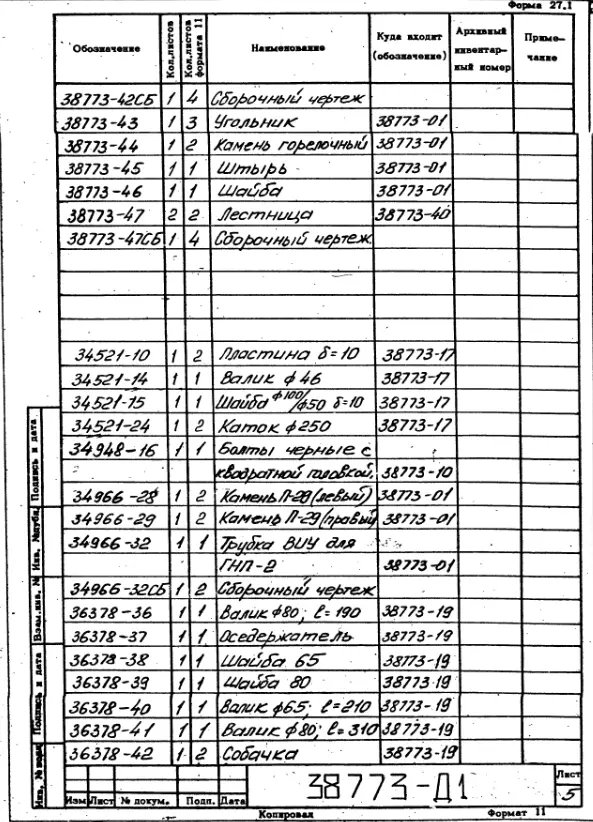 Форма 27.1
Обозначение Кол.листов Кол.листов формата 11 Наименование Куда входит (обозначение) Архивный инвентарный номер Примечание
38773-42СБ 1 4 Сборочный чертеж
38773-43 1 3 Угольник 38773-01
38773-44 1 2 Камень горелочный 38773-01
38773-45 1 1 Штырь 38773-01
38773-46 1 1 Шайба 38773-01
38773-47 2 2 Лестница 38773-40
38773-47СБ 1 4 Сборочный чертеж
34521-10 1 2 Пластина δ=10 38773-17
34521-14 1 1 Валик ф46 38773-17
34521-15 1 1 Шайба ф100/ф50 δ=10 38773-17
34521-24 1 2 Каток ф250 38773-17
34948-16 1 1 Болты черные с
квадратной головкой. 38773-10
34966-28 1 2 Камень П-28 (левый) 38773-01
34966-29 1 2 Камень П-29 (правый) 38773-01
34966-32 1 1 Трубка ВИУ для
ГНП-2 38773-01
34966-32СБ 1 2 Сборочный чертеж
36378-36 1 1 Валик ф80; ℓ=190 38773-19
36378-37 1 1 Оседержатель 38773-19
36378-38 1 1 Шайба 65 38773-19
36378-39 1 1 Шайба 80 38773-19
36378-40 1 1 Валик ф65. ℓ=210 38773-19
36378-41 1 1 Валик ф80; ℓ=310 38773-19
36378-42 1 2 Собачка 38773-19
Подпись и дата
Взам.инв. №
Подпись и дата
Изм Лист № докум. Подп. Дата
38773-Д1
Лист
5
Копировал Формат 11